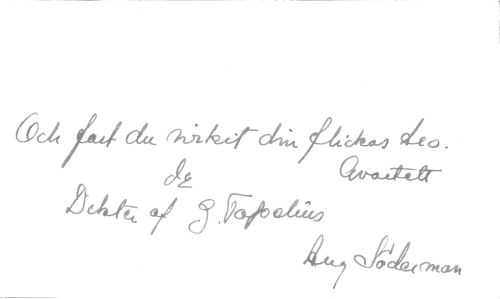 Och fast du mistit din flickas
Qvartett
Dikter af Z. Topelius
Aug Söderman